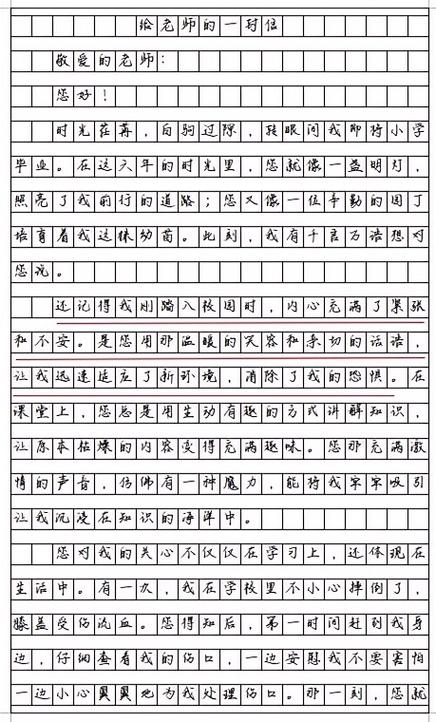 给老师的一封信
敬爱的老师：
您好！
时光荏苒，白驹过隙，转眼间我即将小学
毕业。在这六年的时光里，您就像一盏明灯，
照亮了我前行的道路；您又像一位辛勤的园丁
培育着我这株幼苗。此刻，我有千言万语想对
您说。
还记得我刚踏入校园时，内心充满了紧张
和不安。是您用那温暖的笑容和亲切的话语，
让我迅速适应了新环境，消除了我的恐惧。在
课堂上，您总是用生动有趣的方式讲解知识，
让原本枯燥的内容变得充满趣味。您那充满激
情的声音，仿佛有一种魔力，能将我牢牢吸引
让我沉浸在知识的海洋中。
您对我的关心不仅仅在学习上，还体现在
生活中。有一次，我在学校里不小心摔倒了，
膝盖受伤流血。您得知后，第一时间赶到我身
边，仔细查看我的伤口，一边安慰我不要害怕
一边小心翼翼地为我处理伤口。那一刻，您就